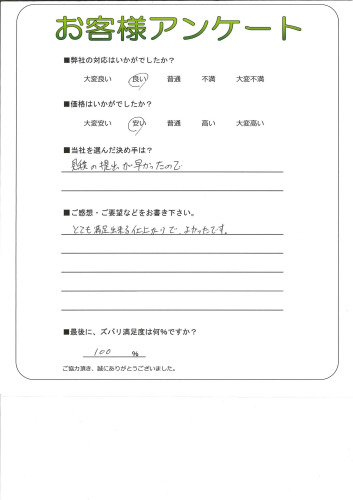 お客様アンケート
■弊社の対応はいかがでしたか？
大変良い 良い 普通 不満 大変不満
■価格はいかがでしたか？
大変安い 安い 普通 高い 大変高い
■当社を選んだ決め手は？
見積の提出が早かったので
■ご感想・ご要望などをお書き下さい。
とても満足出来る仕上がりで、よかったです。
■最後に、ズバリ満足度は何％ですか？
100 ％
ご協力頂き、誠にありがとうございました。